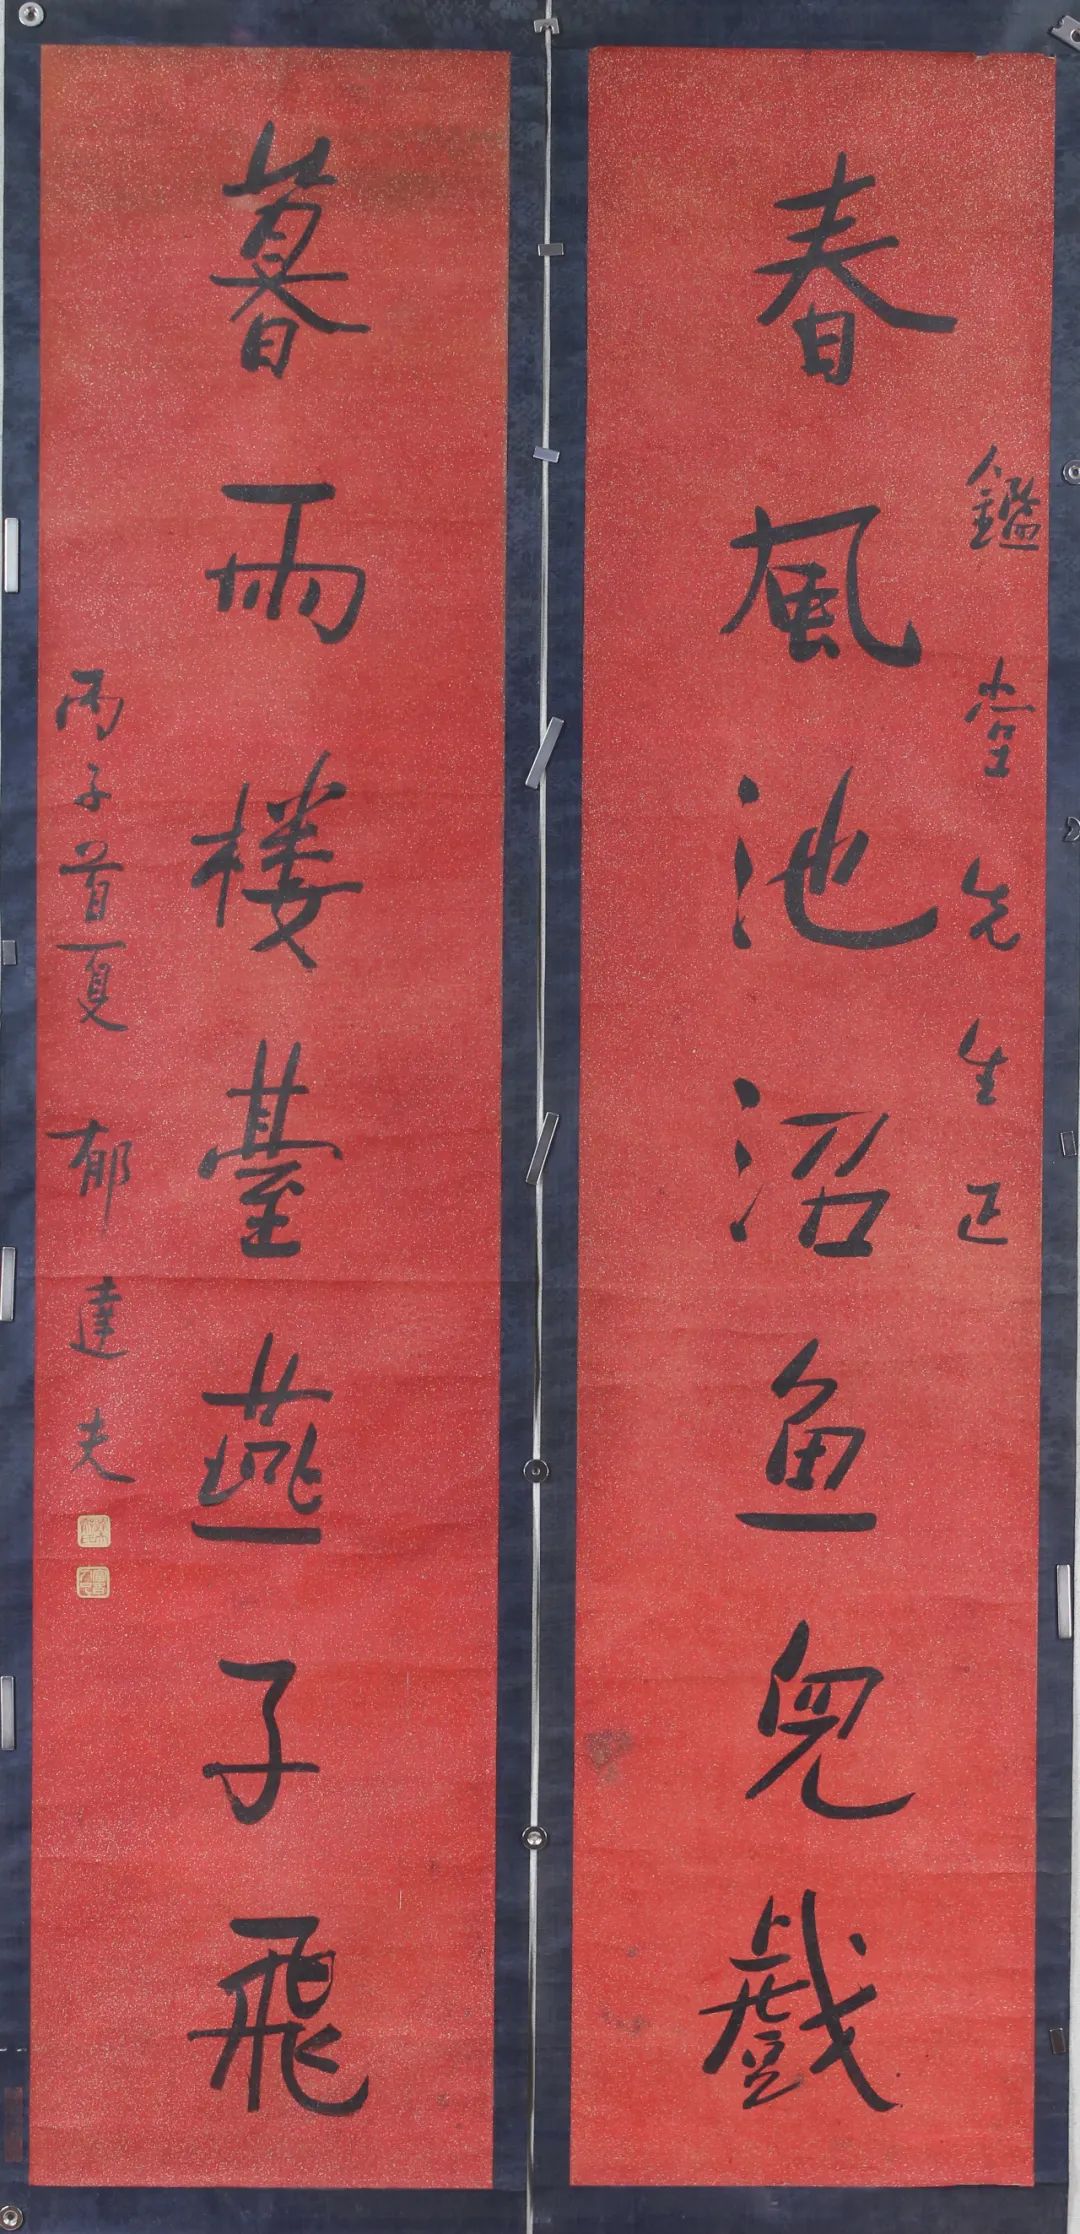 鑑堂先生正
春風池沼鱼兒戲
暮雨楼臺燕子飛
丙子首夏 郁達夫